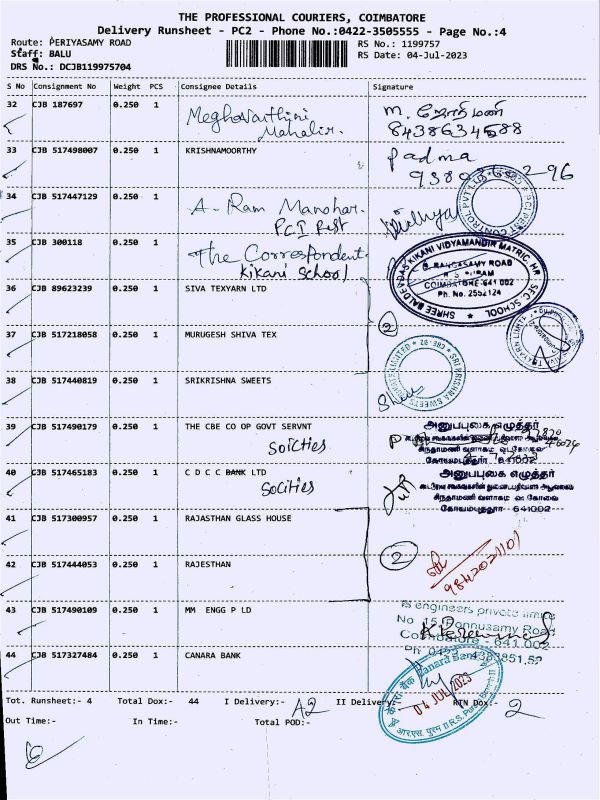 THE PROFESSIONAL COURIERS, COIMBATORE
Delivery Runsheet - PC2 - Phone No.:0422-3505555 - Page No.:4
Route: PERIYASAMY ROAD
RS No.: 1199757
Staff: BALU
RS Date: 04-Jul-2023
DRS No.: DCJB119975704
S No Consignment No Weight PCS Consignee Details Signature
32 CJB 187697 0.250 1 Meghavarthini
Mahalir.
m. ஜோர்மணி
8438634588
33 CJB 517498007 0.250 1 KRISHNAMOORTHY
Padma
34 CJB 517447129 0.250 1 A. Ram Manohar.
PCI Pest
PCI PEST CONTROL PVT LTD
35 CJB 300118 0.250 1 The Correspondent.
Kikani School
SHREE BALDEVDAS KIKANI VIDYAMANDIR MATRIC. HR SEC. SCHOOL
RANGASAMY ROAD
R S PURAM
COIMBATORE-641 002
Ph. No. 2552124
36 CJB 89623239 0.250 1 SIVA TEXYARN LTD
2
37 CJB 517218058 0.250 1 MURUGESH SHIVA TEX
SRI KRISHNA SWEETS
38 CJB 517440819 0.250 1 SRIKRISHNA SWEETS
39 CJB 517490179 0.250 1 THE CBE CO OP GOVT SERVNT
Soicties
அனுப்புகை எழுத்தர்
சிந்தாமணி வளாகம்
கோயம்புத்தூர் 641002
40 CJB 517465183 0.250 1 C D C C BANK LTD
Socities
அனுப்புகை எழுத்தர்
சிந்தாமணி வளாகம் வ. கோவை
கோயம்புத்தூர் 641002
41 CJB 517300957 0.250 1 RAJASTHAN GLASS HOUSE
2
42 CJB 517444053 0.250 1 RAJESTHAN
9842021101
43 CJB 517490109 0.250 1 MM ENGG P LD
engineers private limite
No 15, Ponnusamy Road
Coimbatore - 641 002
44 CJB 517327484 0.250 1 CANARA BANK
Canara Bank
04 JUL 2023
Tot. Runsheet:- 4 Total Dox:- 44 I Delivery:- 42 II Delivery:- RTN Dox:- 2
Out Time:- In Time:- Total POD:-